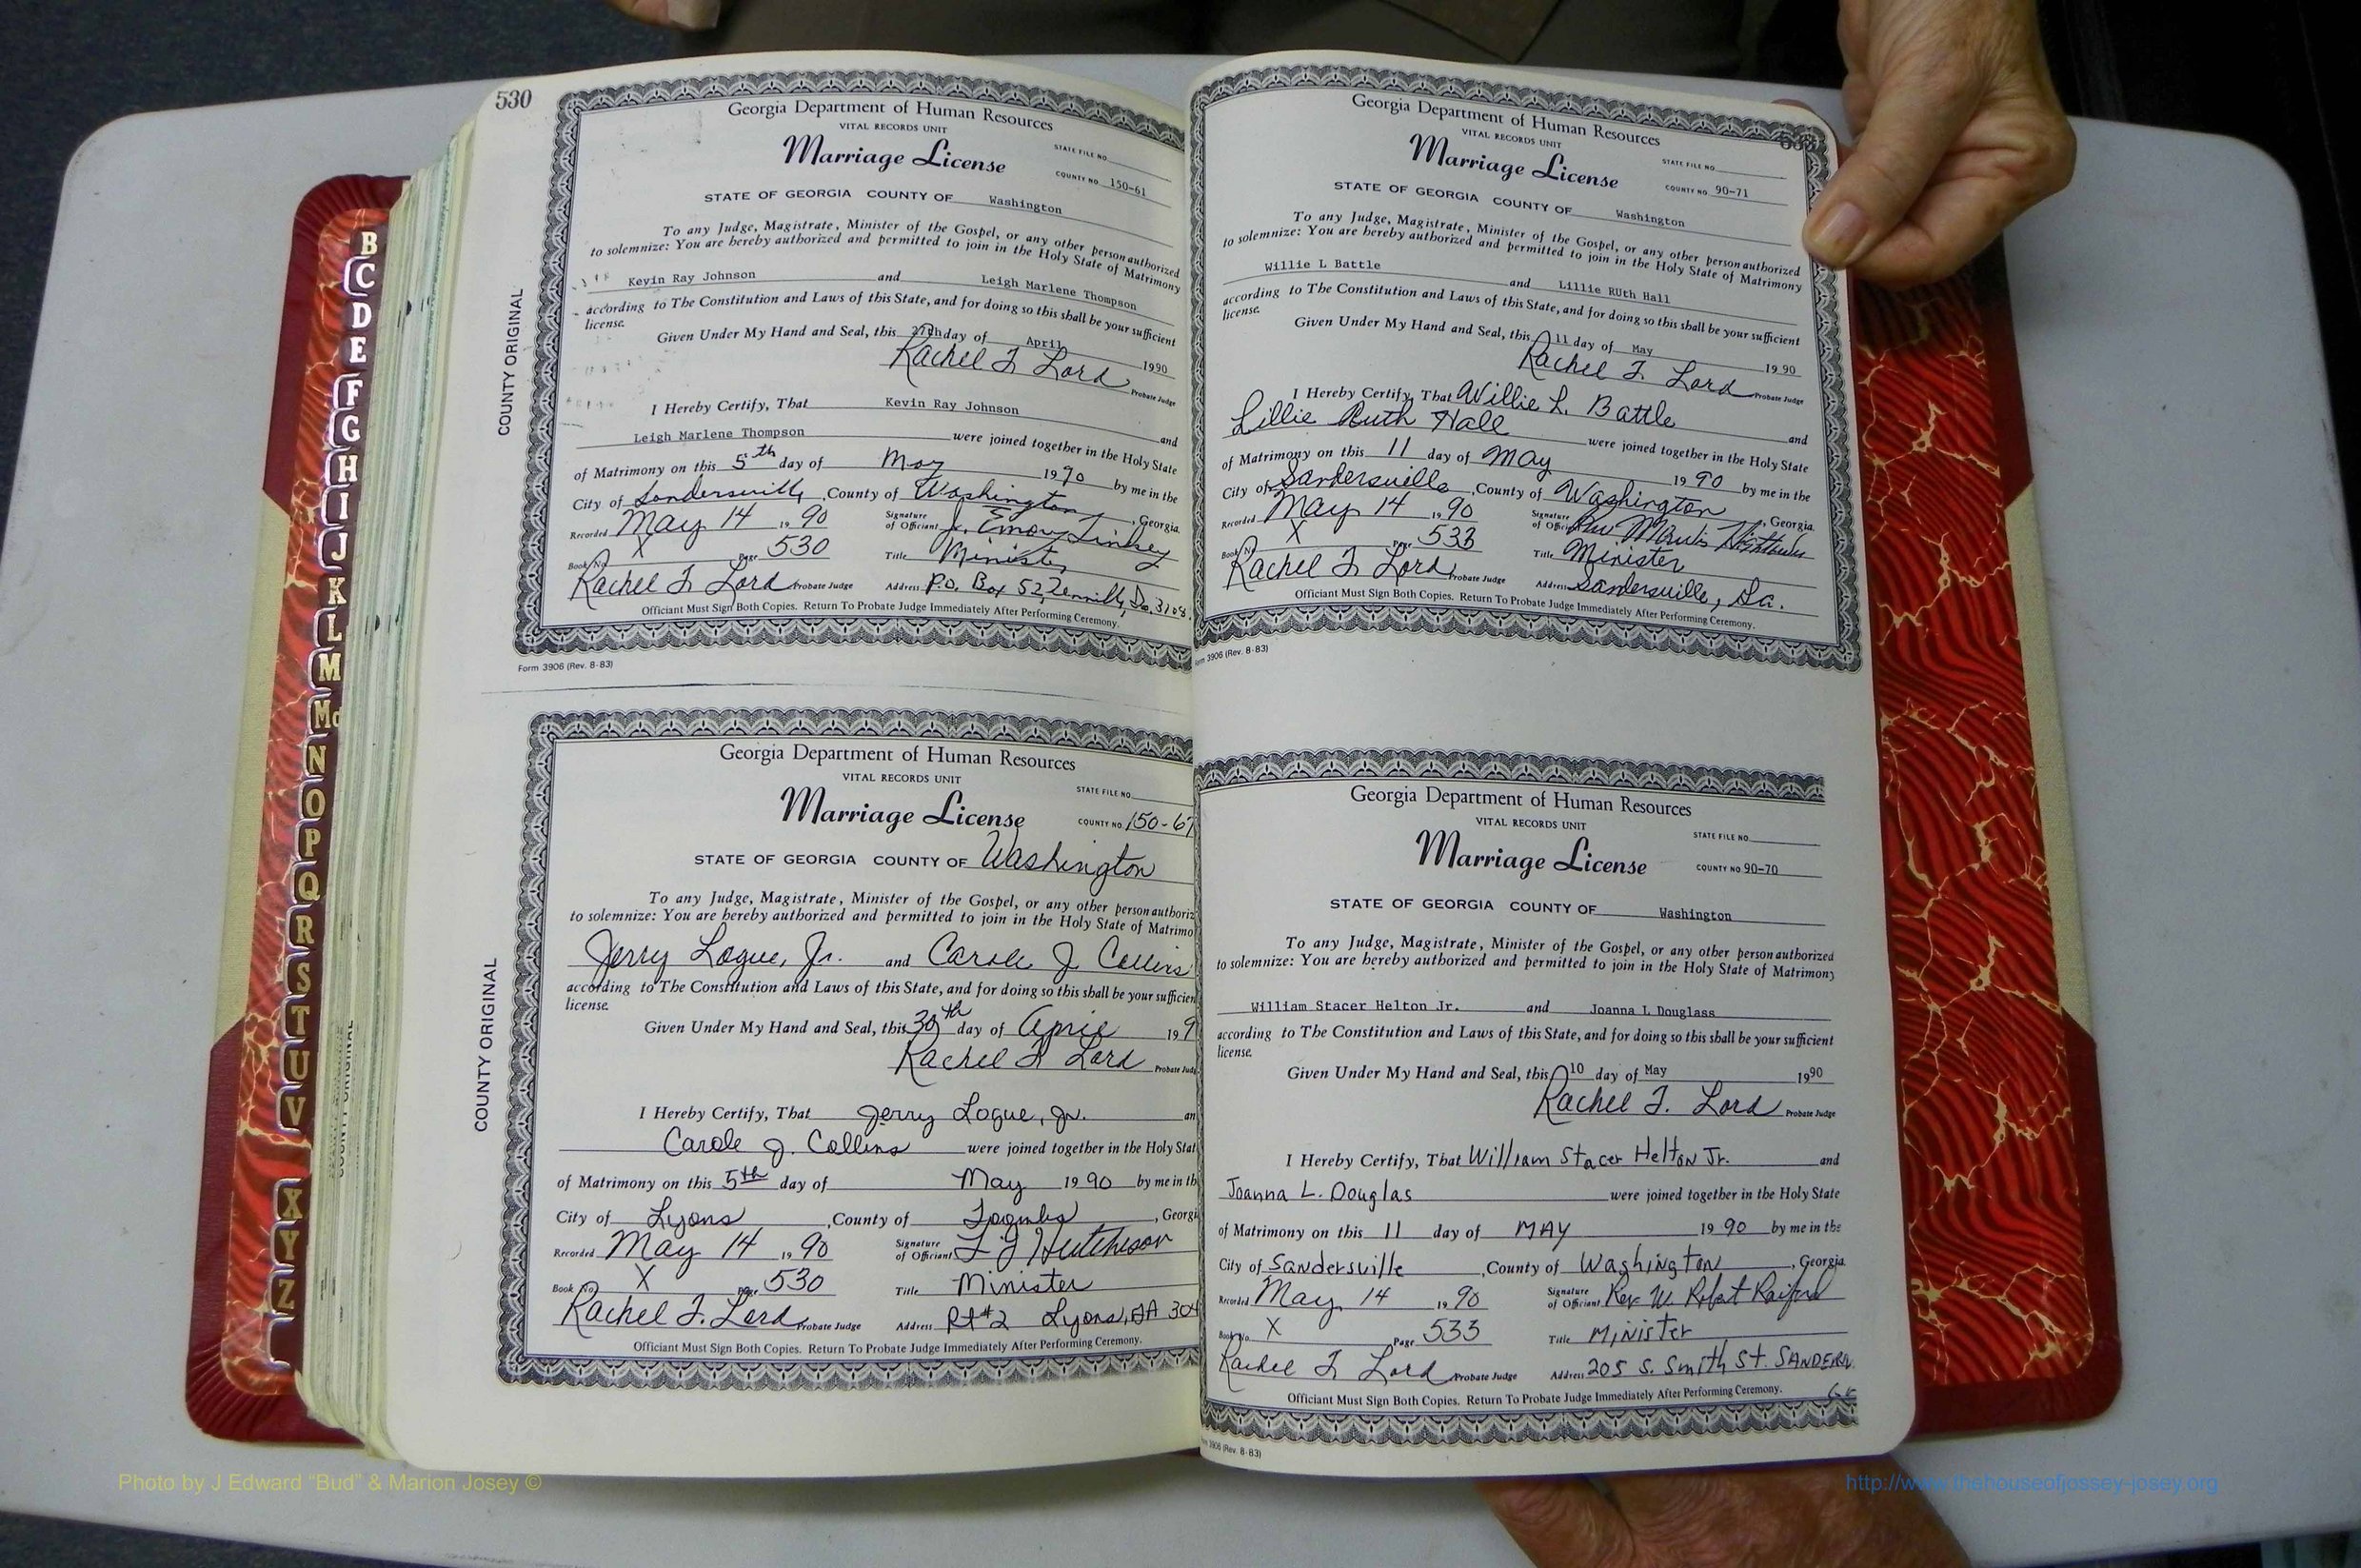 530
Georgia Department of Human Resources
VITAL RECORDS UNIT
Marriage License
STATE FILE NO.
COUNTY NO. 150-61
STATE OF GEORGIA COUNTY OF Washington
To any Judge, Magistrate, Minister of the Gospel, or any other person authorized
to solemnize: You are hereby authorized and permitted to join in the Holy State of Matrimony
Kevin Ray Johnson and Leigh Marlene Thompson
according to The Constitution and Laws of this State, and for doing so this shall be your sufficient
license.
Given Under My Hand and Seal, this 27th day of April 1990
Rachel T. Lord Probate Judge
I Hereby Certify, That Kevin Ray Johnson and
Leigh Marlene Thompson were joined together in the Holy State
of Matrimony on this 5th day of May 1990 by me in the
City of Sandersville, County of Washington, Georgia.
Recorded May 14 1990 Signature of Officiant J. Emory Lindsey
Book No. X Page 530 Title Minister
Rachel T. Lord Probate Judge Address P.O. Box 52, Tennille, Ga. 3108
Officiant Must Sign Both Copies. Return To Probate Judge Immediately After Performing Ceremony.
Form 3906 (Rev. 8-83)
COUNTY ORIGINAL
Georgia Department of Human Resources
VITAL RECORDS UNIT
Marriage License
STATE FILE NO.
COUNTY NO. 150-67
STATE OF GEORGIA COUNTY OF Washington
To any Judge, Magistrate, Minister of the Gospel, or any other person authoriz
to solemnize: You are hereby authorized and permitted to join in the Holy State of Matrimo
Jerry Logue, Jr. and Carole J Collins
according to The Constitution and Laws of this State, and for doing so this shall be your sufficien
license.
Given Under My Hand and Seal, this 30th day of April 199
Rachel T. Lord Probate Judg
I Hereby Certify, That Jerry Logue, Jr. an
Carole J. Collins were joined together in the Holy Stat
of Matrimony on this 5th day of May 1990 by me in th
City of Lyons, County of Toombs, Georgi
Recorded May 14 1990 Signature of Officiant L J Hutcheson
Book No. X Page 530 Title Minister
Rachel T. Lord Probate Judge Address Rt #2 Lyons, GA 304
Officiant Must Sign Both Copies. Return To Probate Judge Immediately After Performing Ceremony.
COUNTY ORIGINAL
533
Georgia Department of Human Resources
VITAL RECORDS UNIT
Marriage License
STATE FILE NO.
COUNTY NO. 90-71
STATE OF GEORGIA COUNTY OF Washington
To any Judge, Magistrate, Minister of the Gospel, or any other person authorized
to solemnize: You are hereby authorized and permitted to join in the Holy State of Matrimony
Willie L Battle and Lillie RUth Hall
according to The Constitution and Laws of this State, and for doing so this shall be your sufficient
license.
Given Under My Hand and Seal, this 11 day of May 1990
Rachel T. Lord Probate Judge
I Hereby Certify, That Willie L. Battle and
Lillie Ruth Hall were joined together in the Holy State
of Matrimony on this 11 day of May 1990 by me in the
City of Sandersville, County of Washington, Georgia.
Recorded May 14 1990 Signature of Officiant Rev
Book No. X Page 533 Title Minister
Rachel T. Lord Probate Judge Address Sandersville, Ga.
Officiant Must Sign Both Copies. Return To Probate Judge Immediately After Performing Ceremony.
3906 (Rev. 8-83)
Georgia Department of Human Resources
VITAL RECORDS UNIT
Marriage License
STATE FILE NO.
COUNTY NO 90-70
STATE OF GEORGIA COUNTY OF Washington
To any Judge, Magistrate, Minister of the Gospel, or any other person authorized
to solemnize: You are hereby authorized and permitted to join in the Holy State of Matrimony
William Stacer Helton Jr. and Joanna L Douglass
according to The Constitution and Laws of this State, and for doing so this shall be your sufficient
license.
Given Under My Hand and Seal, this 10 day of May 1990
Rachel T. Lord Probate Judge
I Hereby Certify, That William Stacer Helton Jr. and
Joanna L. Douglas were joined together in the Holy State
of Matrimony on this 11 day of MAY 1990 by me in the
City of Sandersville, County of Washington, Georgia.
Recorded May 14 1990 Signature of Officiant Rev W. Robert Raiford
Book No. X Page 533 Title Minister
Rachel T. Lord Probate Judge Address 205 S. Smith St. SANDERSV.
Ga
Officiant Must Sign Both Copies. Return To Probate Judge Immediately After Performing Ceremony.
3906 (Rev. 8-83)
B
C
D
E
F
G
H
I
J
K
L
M
Mc
N
O
P
Q
R
S
T
U
V
X
Y
Z
COUNTY ORIGINAL
Photo by J Edward “Bud” & Marion Josey ©
http://www.thehouseofjossey-josey.org